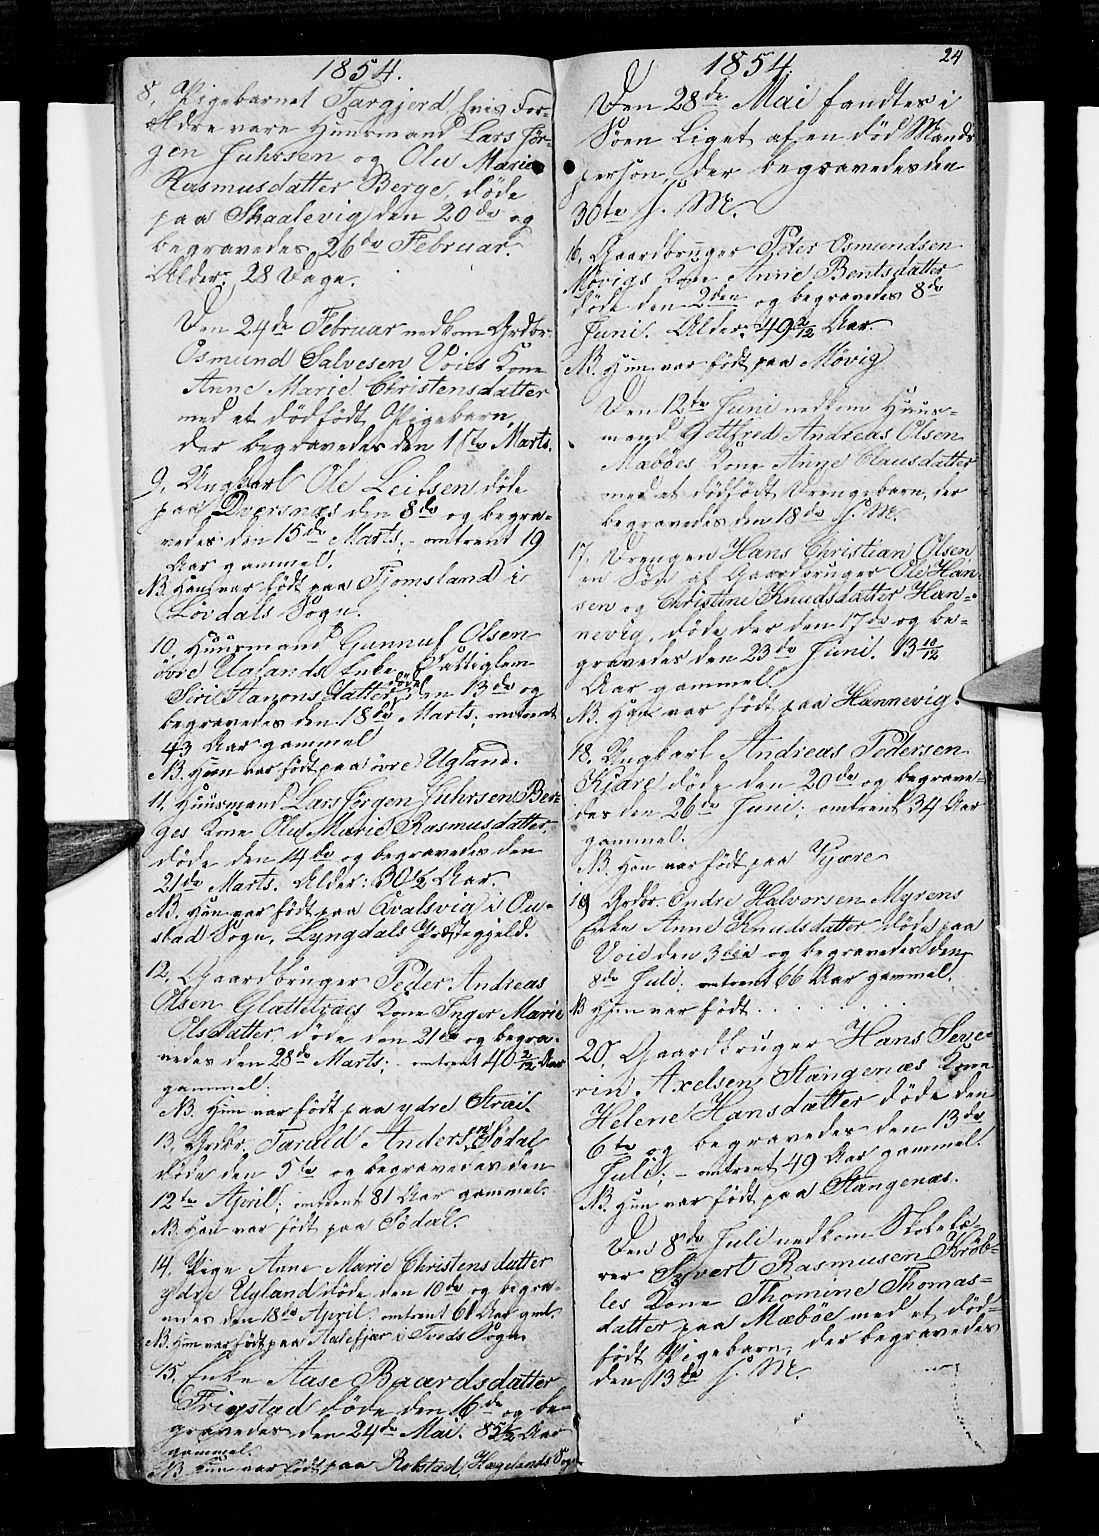 1854.
8, Pigebarnet Targjerd, hvis For-
ældre vare Huusmand Lars Jør-
gen Juhrsen og Olu Marie
Rasmusdatter Berge, døde
paa Skaalevig den 20de og
begravedes 26de Februar.
Alder: 28 Dage.
Den 24de Februar nedkom Grdbr.
Osmund Salvesen Voies Kone
Anne Marie Christensdatter
med et dødfødt Pigebarn,
der begravedes den 1ste Marts.
9, Ungkarl Ole Leifsen døde
paa Dversnæs den 8de og begra-
vedes den 15de Marts; - omtrent 19
Aar gammel.
NB. Han var født paa Tjomsland i
Løvdals Sogn.
10, Huusmand Gunnuf Olsen
øvre Uglands Enke, Fattiglem
Siri Aanonsdatter døde den 13de og
begravedes den 18de Marts; omtrent
43 Aar gammel
NB. Hun var født paa øvre Ugland.
11, Huusmand Lars Jørgen Juhrsen Ber-
ges Kone Olu Marie Rasmusdatter
døde den 14de og begravedes den
21de Marts. Alder: 30 1/2 Aar.
NB. Hun var født paa Qvalsvig i Au-
stad Sogn, Lyngdals Præstegjeld.
12, Gaardbruger Peder Andreas
Olsen Glattetræs Kone Inger Marie
Olsdatter døde den 21de og begra-
vedes den 28de Marts; - omtrent 40 2/12 Aar
gammel.
NB. Hun var født paa ydre Strai.
13, Grdbr. Tarald Anders. Sødal
døde den 5te og begravedes den
12te April; omtrent 81 Aar gammel.
NB. Han var født paa Sødal.
14, Pige Anne Marie Christensdatter
ydre Ugland døde den 10de og begra-
vedes den 18de April; omtrent 61 Aar gml.
NB. Hun var født paa Aalefjær i Tveds Sogn.
15, Enke Aase Baardsdatter
Frigstad døde den 16de og be-
gravedes den 24de Mai. 85 1/2 Aar
gammel.
NB. Hun var født paa Robstad, Hægelands Sogn.
24
1854
Den 28de Mai fandtes i
Søen Liget af en død Mands-
person, der begravedes den
30te s. M.
16, Gaardbruger Peder Osmundsen
Møvigs Kone Anne Bentsdatter
døde den 2den og begravedes 8de
Juni. Alder: 49 2/12 Aar.
NB. Hun var født paa Møvig
Den 12te Juni nedkom Huus-
mand Gottfred Andreas Olsen
Mæbøes Kone Anne Clausdatter
med et dødfødt Drengebarn, der
begravedes den 18de s. M.
17, Drengen Hans Christian Olsen
en Søn af Gaardbruger Ole Han-
sen og Christine Knudsdatter Han-
nevig, døde der den 17de og be-
gravedes den 23de Juni. 13 10/12
Aar gammel.
NB. Han var født paa Hannevig.
18, Ungkarl Andreas Pedersen
Kjære døde den 20de og begrave-
des den 26de Juni; omtrent 34 Aar
gammel.
NB. Han var født paa Kjære
19 Grdbr. Endre Halvorsen Myrens
Enke Anne Knudsdatter døde paa
Voie den 3die og begravedes den
8de Juli. omtrent 66 Aar gammel.
NB Hun var født . . . . . . .
20, Gaardbruger Hans Seve-
rin Axelsen Stangenæs Kone
Helene Hansdatter døde den
6te og begravedes den 13de
Juli; - omtrent 49 Aar gammel.
NB. Hun var født paa Stangenæs.
Den 8de Juli nedkom Skolelæ-
rer Syvert Rasmusen Krøb-
les Kone Thomine Thomas-
datter paa Mæbøe med et død-
født Pigebarn, der begravedes
den 13de s. M.